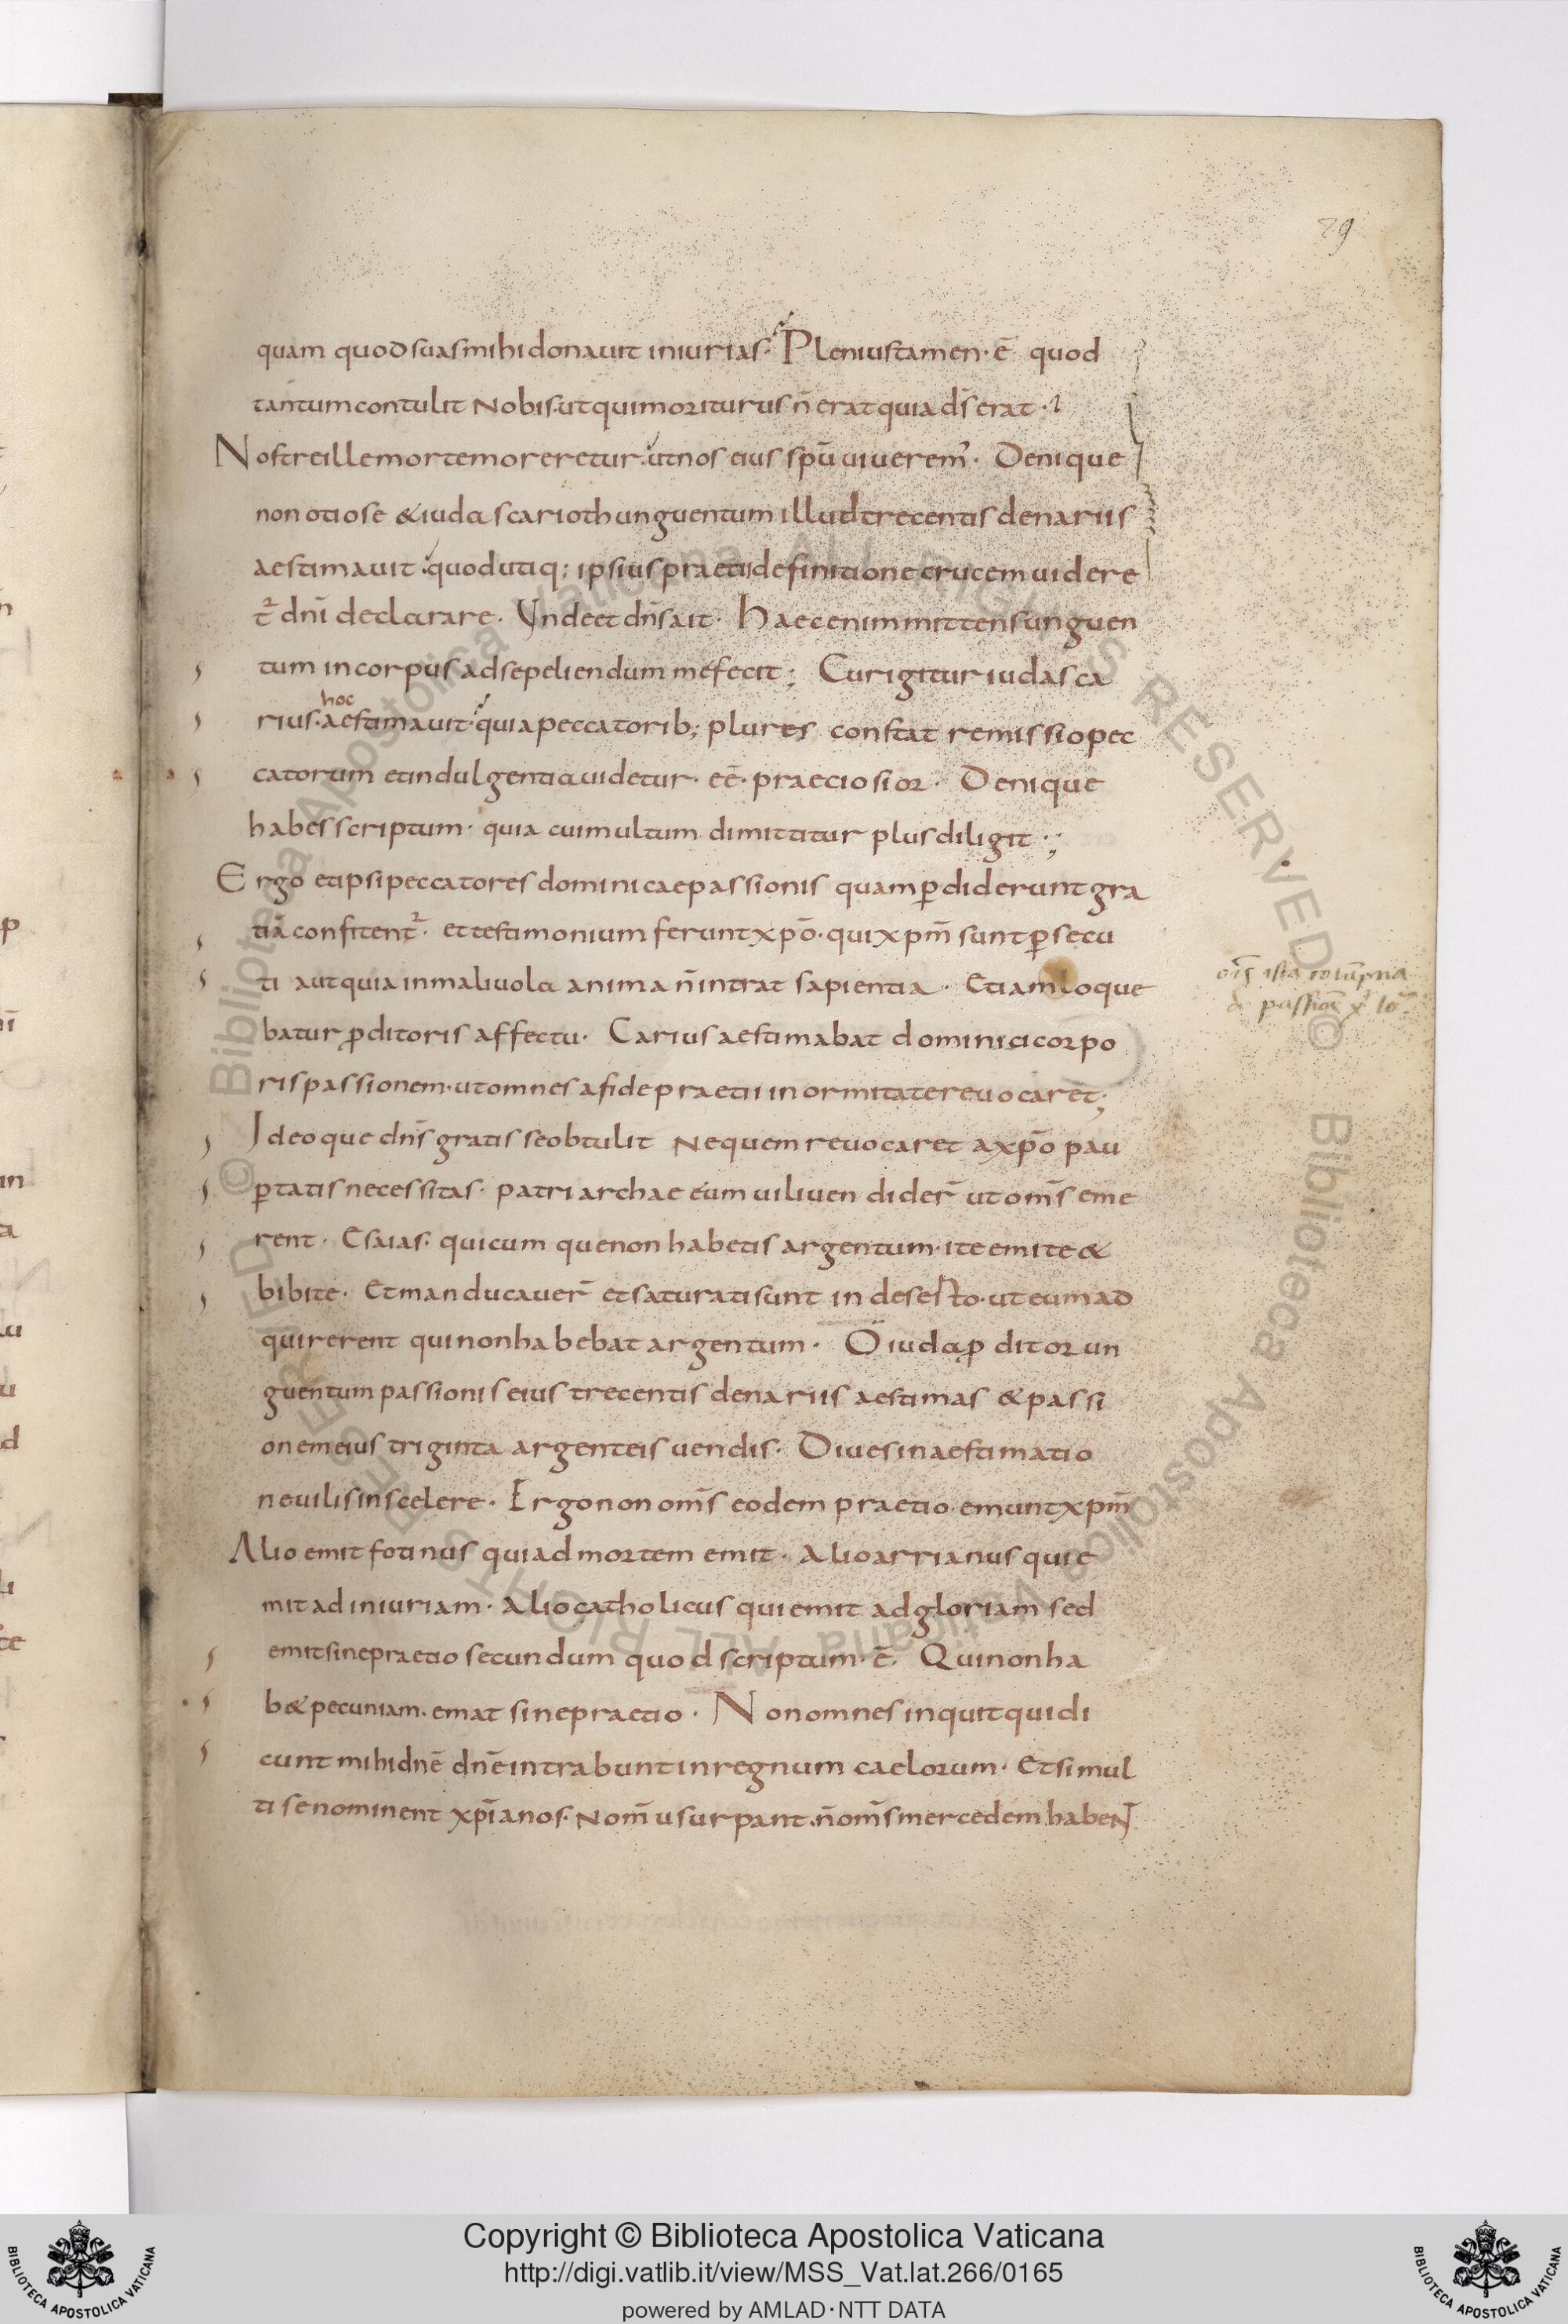 29
quam quod suas mihi donauit iniurias. Plenius tamen · ē quod
tantum contulit Nobis ut qui moriturus n̄ erat quia d̄s erat ·
Nostre ille morte moreretur. ut nos eius spū uiuerem᾽. Denique
non otiose & iuda scarioth unguentum illud trecentis denariis
aestimauit. quod utiq; ipsius praetii definitione crucem uidere
t᷑ dn̄i declarare. Vnde et dn̄s ait. Haec enim mittens unguen
tum in corpus ad sepeliendum me fecit; Cur igitur iudas ca
rius · hoc aestimauit · quia peccatorib; plures constat remissio pec
catorum et indulgentia uidetur · eē · praeciosior. Denique
habes scriptum · quia cui multum dimittitur plus diligit ·;
Ergo et ipsi peccatores dominicae passionis quam ꝑdiderunt gra
tiā confitent᷑. et testimonium ferunt xp̄o. qui xpm̄ sunt ꝑsecu
ti aut quia in maliuola anima n̄ intrat sapientia. Etiam loque
batur ꝓditoris affectu. Carius aestimabat dominici corpo
ris passionem. ut omnes a fide praetii inormitate reuocaret;
Ideoque dn̄s gratis se obtulit Nequem reuocaret a xp̄o pau
ꝑtatis necessitas. patriarchae eum uili uendider̄ ut om̄s eme
rent. Esaias. quicumque non habetis argentum. ite emite &
bibite. Et manducauer̄ et saturati sunt in deserto. ut eum ad
quirerent qui non habebat argentum. O iuda ꝓditor un
guentum passionis eius trecentis denariis aestimas & passi
onem eius triginta argenteis uendis. Diues in aestimatio
ne uilis in scelere. Ergo non om̄s eodem praetio emunt xpm̄
Alio emit fotinus qui ad mortem emit. Alio arrianus qui e
mit ad iniuriam. Alio catholicus qui emit ad gloriam sed
emit sine praetio secundum quod scriptum · ē. Qui non ha
b& pecuniam. emat sine praetio. Non omnes inquit qui di
cunt mihi dn̄e dn̄e intrabunt in regnum caelorum. Et si mul
ti se nominent xp̄ianos. Nom̄ usurpant. n̄ om̄s mercedem habent
Copyright © Biblioteca Apostolica Vaticana
http://digi.vatlib.it/view/MSS_Vat.lat.266/0165
powered by AMLAD·NTT DATA
BIBLIOTECA APOSTOLICA VATICANA
BIBLIOTECA APOSTOLICA VATICANA
© Biblioteca Apostolica Vaticana ALL RIGHTS RESERVED © Biblioteca Apostolica Vaticana ALL RIGHTS RESERVED